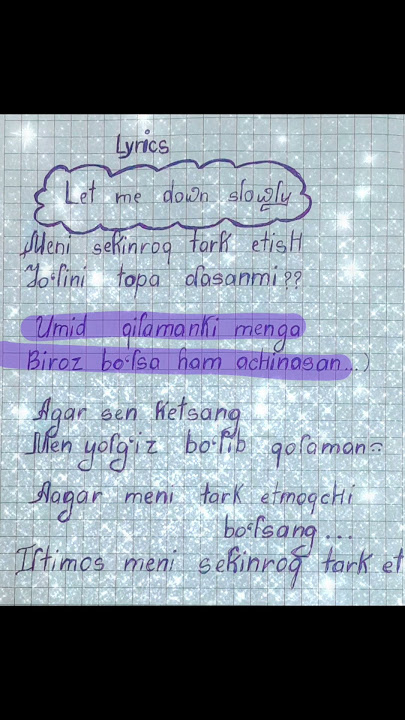 Lyrics
Let me down slowly
Meni sekinroq tark etish
Yo'lini topa olasanmi??
Umid qilamanki menga
Biroz bo'lsa ham achinasan...)
Agar sen ketsang
Men yolg'iz bo'lib qolaman
Aagar meni tark etmoqchi
bo'lsang...
Iltimos meni sekinroq tark et